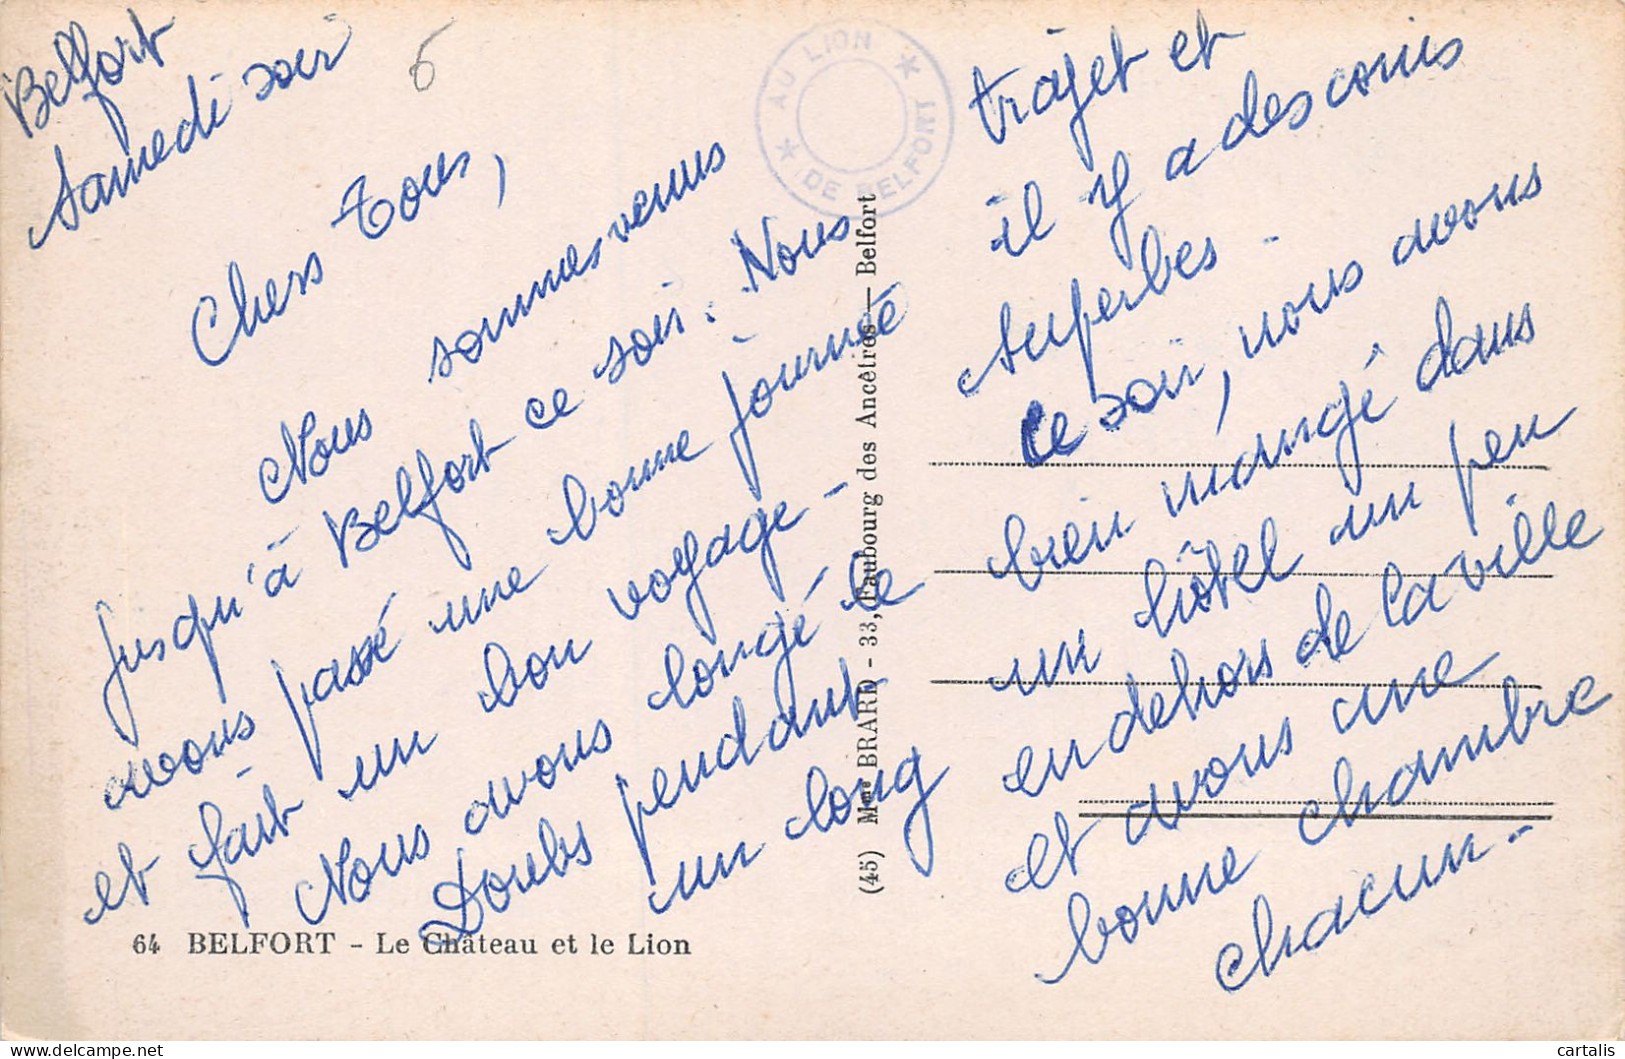 Belfort
Samedi soir
6
Chers Tous,
Nous sommes venus
jusqu'à Belfort ce soir. Nous
avons passé une bonne journée
et fait un bon voyage -
Nous avons longé le
Doubs pendant
un long
trajet et
il y a des coins
superbes -
Ce soir, nous avons
bien mangé dans
un hôtel un peu
en dehors de la ville
et avons une
bonne chambre
chacun -
AU LION
DE BELFORT
(45) Mme BRARD - 33, Faubourg des Ancêtres - Belfort
64 BELFORT - Le Château et le Lion
cartalis